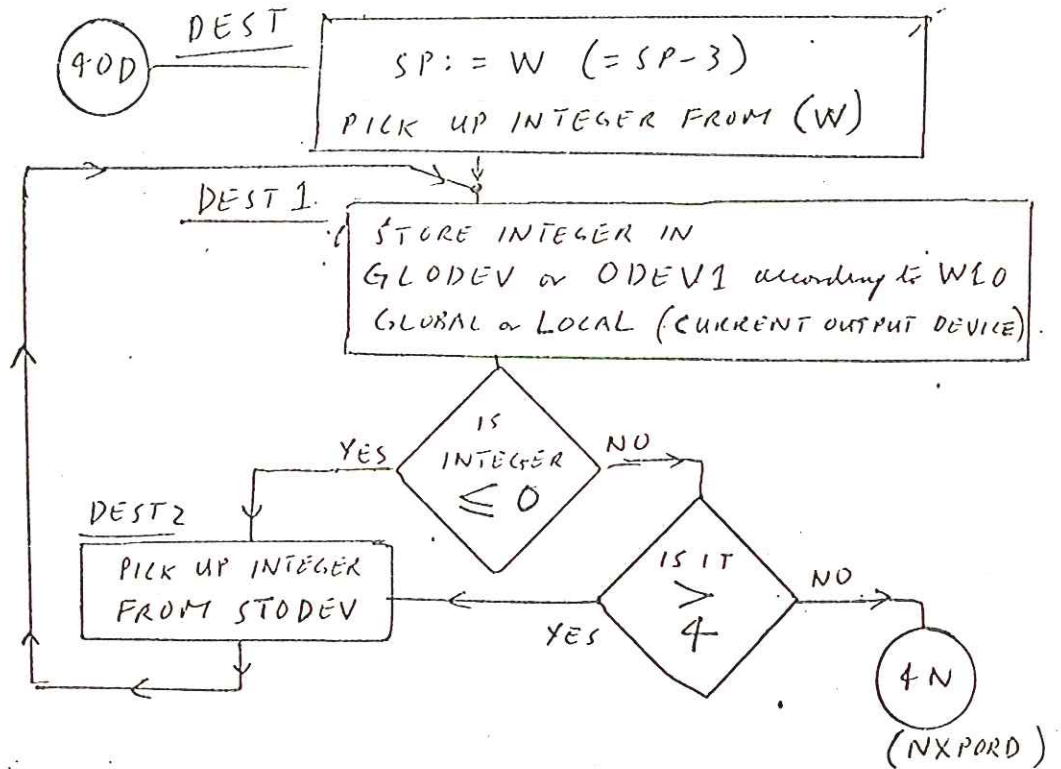 DEST
40D
SP:= W (= SP-3)
PICK UP INTEGER FROM (W)
DEST 1.
STORE INTEGER IN
GLODEV or ODEV1 according to W10
GLOBAL or LOCAL (CURRENT OUTPUT DEVICE).
IS
INTEGER
≤ 0
YES
NO
DEST2
PICK UP INTEGER
FROM STODEV
IS IT
>
4
YES
NO
4N
(NXPORD)